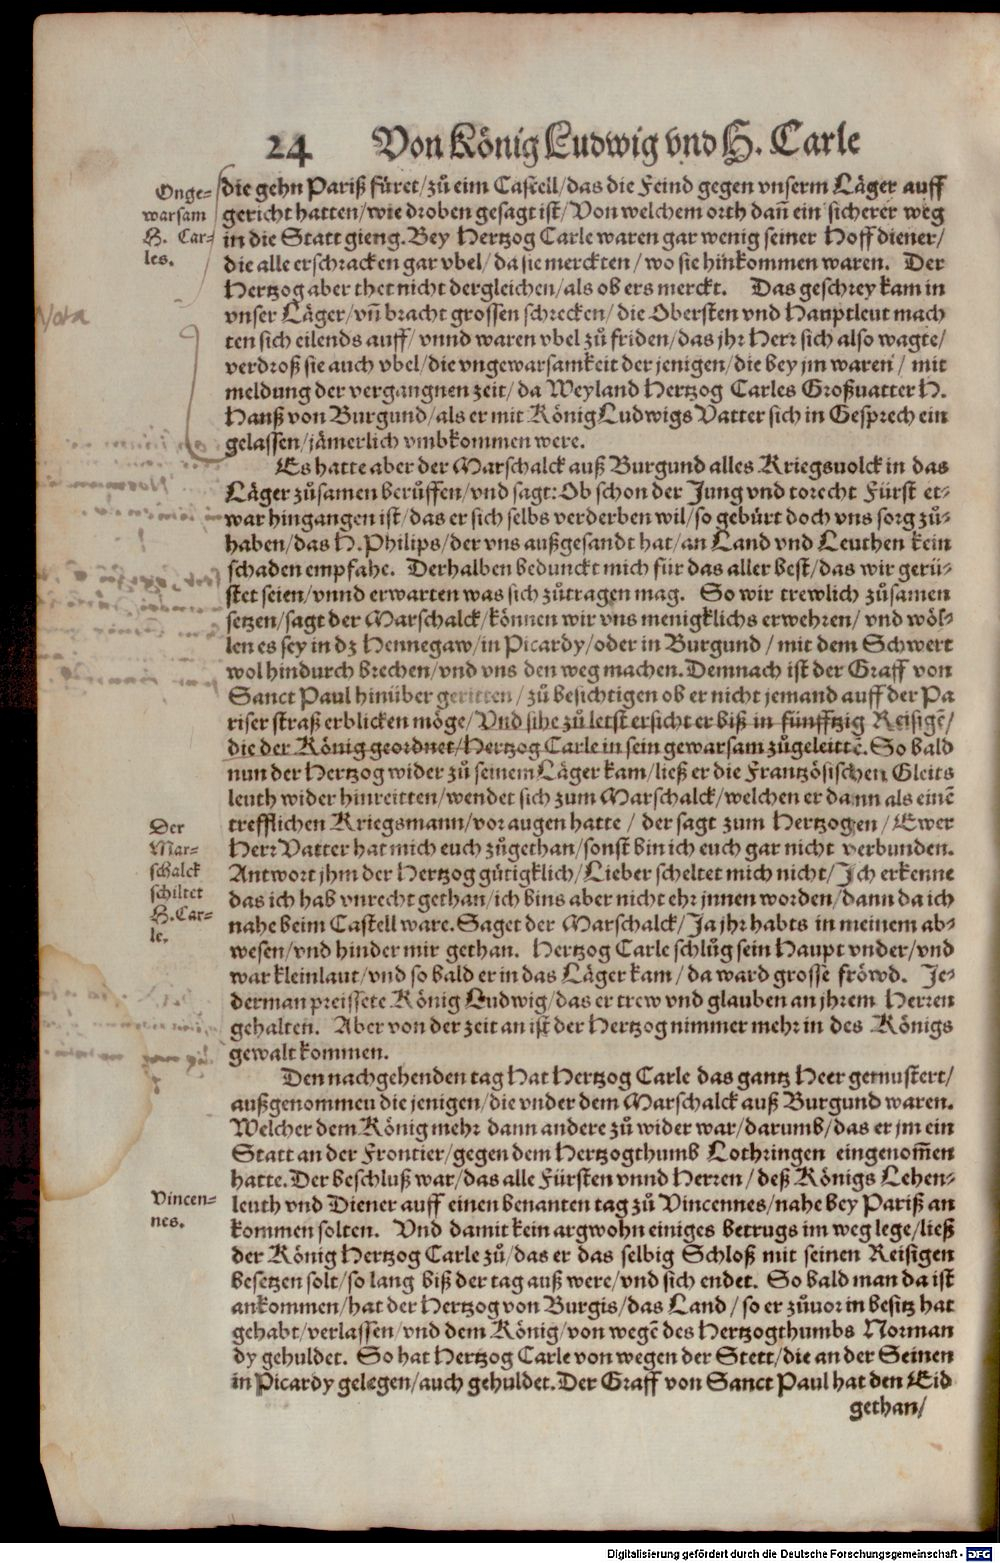 24 Von König Ludwig vnd H. Carle
Onge-
warsam
H. Car-
les.
Nota
die gehn Pariß füret/zů eim Castell/das die Feind gegen vnserm Läger auff
gericht hatten/wie droben gesagt ist/Von welchem orth dañ ein sicherer weg
in die Statt gieng. Bey Hertzog Carle waren gar wenig seiner Hoffdiener/
die alle erschracken gar vbel/da sie merckten/wo sie hinkommen waren. Der
Hertzog aber thet nicht dergleichen/als ob ers merckt. Das geschrey kam in
vnser Läger/vñ bracht grossen schrecken/die Obersten vnd Hauptleut mach
ten sich eilends auff/vnnd waren vbel zů friden/das jhr Herr sich also wagte/
verdroß sie auch vbel/die vngewarsamkeit der jenigen/die bey jm waren/mit
meldung der vergangnen zeit/da Weyland Hertzog Carles Großuatter H.
Hanß von Burgund/als er mit König Ludwigs Vatter sich in Gesprech ein
gelassen/jämerlich vmbkommen were.
Es hatte aber der Marschalck auß Burgund alles Kriegsuolck in das
Läger zůsamen berůffen/vnd sagt: Ob schon der Jung vnd torecht Fürst et-
war hingangen ist/das er sich selbs verderben wil/so gebürt doch vns sorg zů-
haben/das H. Philips/der vns außgesandt hat/an Land vnd Leuthen kein
schaden empfahe. Derhalben bedunckt mich für das aller best/das wir gerü-
stet seien/vnnd erwarten was sich zůtragen mag. So wir trewlich zůsamen
setzen/sagt der Marschalck/können wir vns menigklichs erwehren/vnd wöl-
len es sey in dz Hennegaw/in Picardy/oder in Burgund/mit dem Schwert
wol hindurch brechen/vnd vns den weg machen. Demnach ist der Graff von
Sanct Paul hinüber geritten/zů besichtigen ob er nicht jemand auff der Pa
riser straß erblicken möge/Vnd sihe zů letst ersicht er biß in fünfftzig Reisigē/
die der König geordnet/Hertzog Carle in sein gewarsam zůgeleittē. So bald
nun der Hertzog wider zů seinem Läger kam/ließ er die Frantzösischen Gleits
leuth wider hinreitten/wendet sich zum Marschalck/welchen er dann als einē
Der
Mar-
schalck
schiltet
H. Car-
le.
trefflichen Kriegsmann/vor augen hatte/der sagt zum Hertzogen/Ewer
Herr Vatter hat mich euch zůgethan/sonst bin ich euch gar nicht verbunden.
Antwort jhm der Hertzog gütigklich/Lieber scheltet mich nicht/Ich erkenne
das ich hab vnrecht gethan/ich bins aber nicht ehr jnnen worden/dann da ich
nahe beim Castell ware. Saget der Marschalck/Ja jhr habts in meinem ab-
wesen/vnd hinder mir gethan. Hertzog Carle schlůg sein Haupt vnder/vnd
war kleinlaut/vnd so bald er in das Läger kam/da ward grosse fröwd. Je-
derman preissete König Ludwig/das er trew vnd glauben an jhrem Herren
gehalten. Aber von der zeit an ist der Hertzog nimmer mehr in des Königs
gewalt kommen.
Den nachgehenden tag Hat Hertzog Carle das gantz Heer gemustert/
außgenommen die jenigen/die vnder dem Marschalck auß Burgund waren.
Welcher dem König mehr dann andere zů wider war/darumb/das er jm ein
Statt an der Frontier/gegen dem Hertzogthumb Lothringen eingenom̄en
hatte. Der beschluß war/das alle Fürsten vnnd Herren/deß Königs Lehen-
Vincen-
nes.
leuth vnd Diener auff einen benanten tag zů Vincennes/nahe bey Pariß an
kommen solten. Vnd damit kein argwohn einiges betrugs im weg lege/ließ
der König Hertzog Carle zů/das er das selbig Schloß mit seinen Reisigen
besetzen solt/so lang biß der tag auß were/vnd sich endet. So bald man da ist
ankommen/hat der Hertzog von Burgis/das Land/so er zůuor in besitz hat
gehabt/verlassen/vnd dem König/von wegē des Hertzogthumbs Norman
dy gehuldet. So hat Hertzog Carle von wegen der Stett/die an der Seinen
in Picardy gelegen/auch gehuldet. Der Graff von Sanct Paul hat den Eid
gethan/
Digitalisierung gefördert durch die Deutsche Forschungsgemeinschaft - DFG